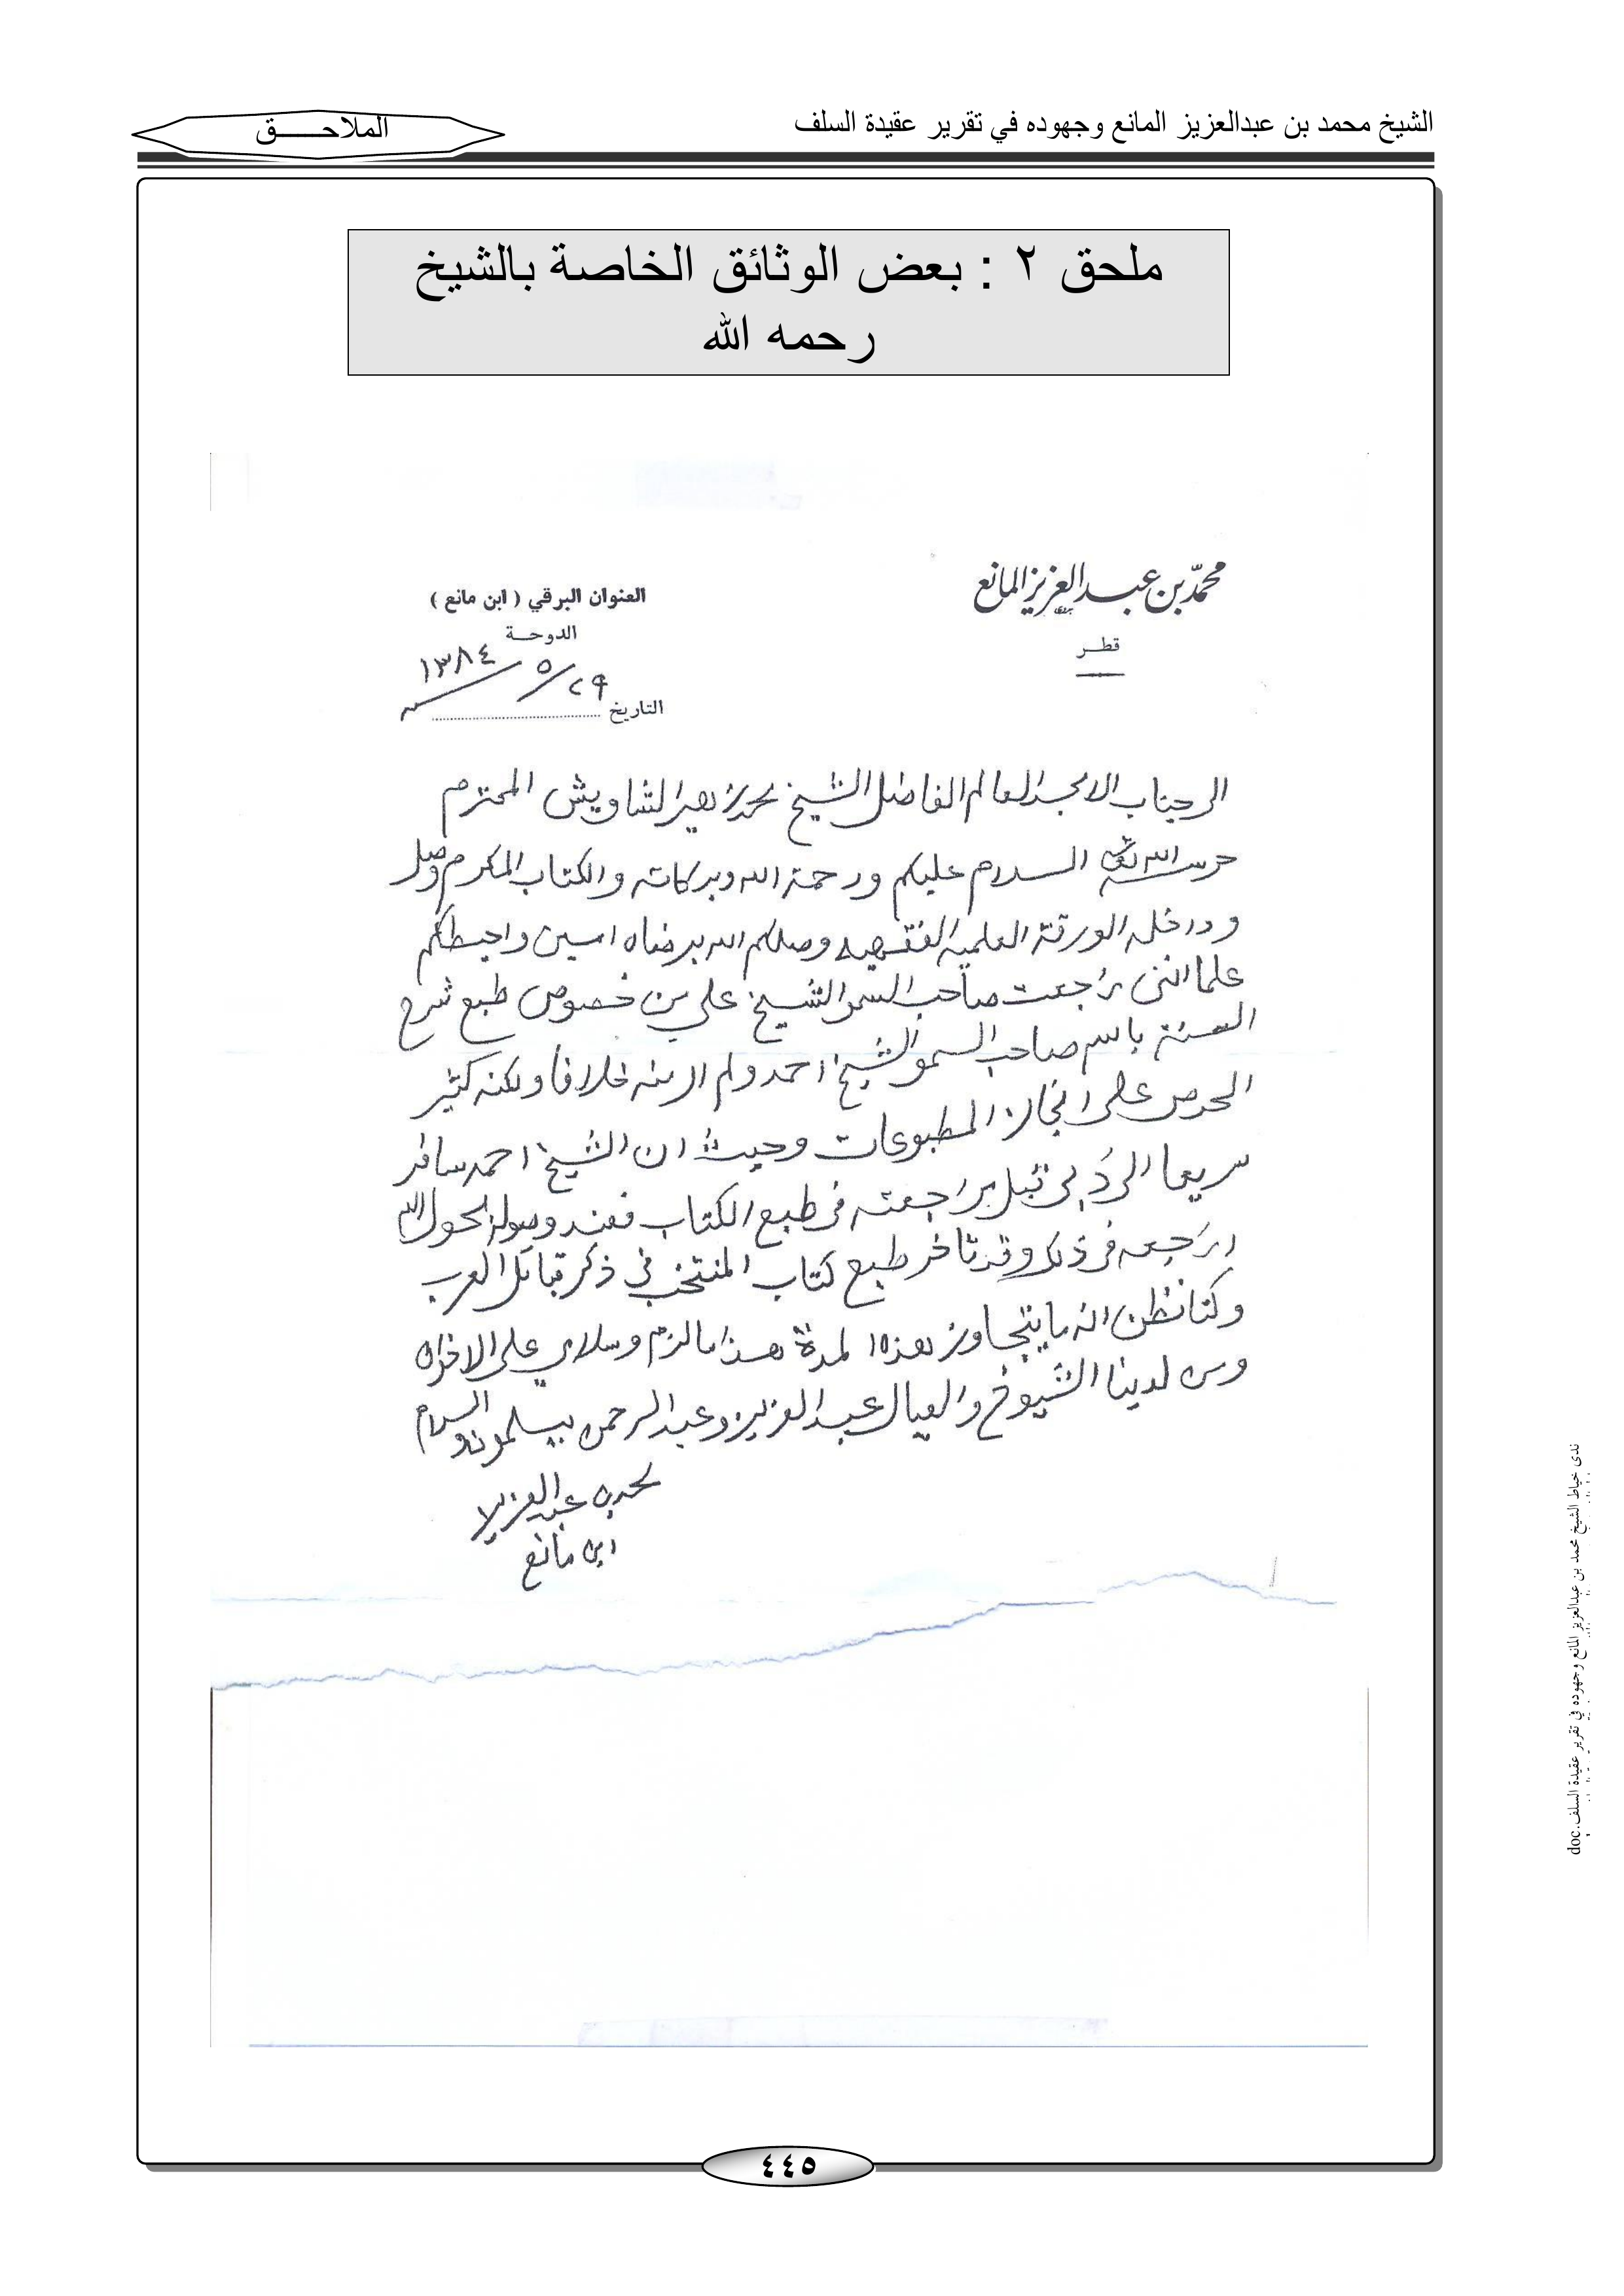 الشيخ محمد بن عبدالعزيز المانع وجهوده في تقرير عقيدة السلف
الملاحـــــق
ملحق ٢ : بعض الوثائق الخاصة بالشيخ
رحمه الله
محمد بن عبد العزيز المانع
قطـر
العنوان البرقي ( ابن مانع )
الدوحـة
التاريخ ٢٩/٥/١٣٨٤
الى جناب الامجد العالم الفاضل الشيخ محمد زهير الشاويش المحترم
حرسه الله تعالى السلام عليكم ورحمة الله وبركاته والكتاب المكرم وصل
وداخله الورقة العلمية الفقهيه وصلكم الله برضاه امين واحيطكم
علما انني راجعت صاحب السمو الشيخ علي من خصوص طبع شرح
السنة باسم صاحب السمو الشيخ احمد ولم ار منه خلافا ولكنه كثير
الحرص على انجاز المطبوعات وحيث ان الشيخ احمد سافر
سريعا الى دبي قبل مراجعته في طبع الكتاب فعند وصوله بحول الله
اراجعه في ذلك وقد تاخر طبع كتاب المنتخب في ذكر قبائل العرب
وكنا نظن انه ما يتجاوز هذه المدة هذا ما لزم وسلامي على الاخوان
ومن لدينا الشيوخ والعيال عبد العزيز وعبد الرحمن يسلمون والسلام
محمد بن عبد العزيز
ابن مانع
٤٤٥
ندى خياط الشيخ محمد بن عبدالعزيز المانع وجهوده في تقرير عقيدة السلف.doc